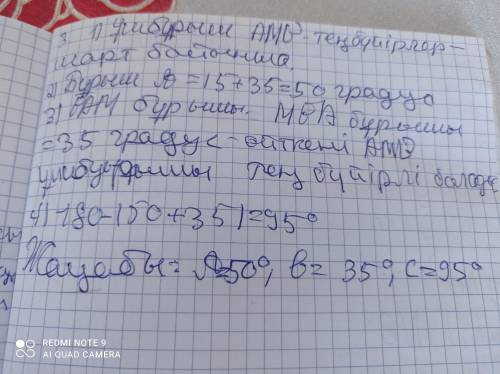 3. 1) Үшбұрыш АМВ - теңбүйірлер-
шарт бойынша.
2) Бұрыш А = 15+35=50 градус
3) ВАМ бұрышы МВА бұрышы
=35 градус - өйткені АМВ
үшбұрышы тең бүйірлі болады
4) 180-(50+35)=95°
Жауабы= А=50°, в= 35°, с=95°
REDMI NOTE 9
AI QUAD CAMERA